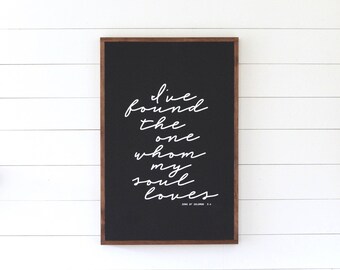 I've
found
the
one
whom
my
soul
loves
SONG OF SOLOMON 3:4